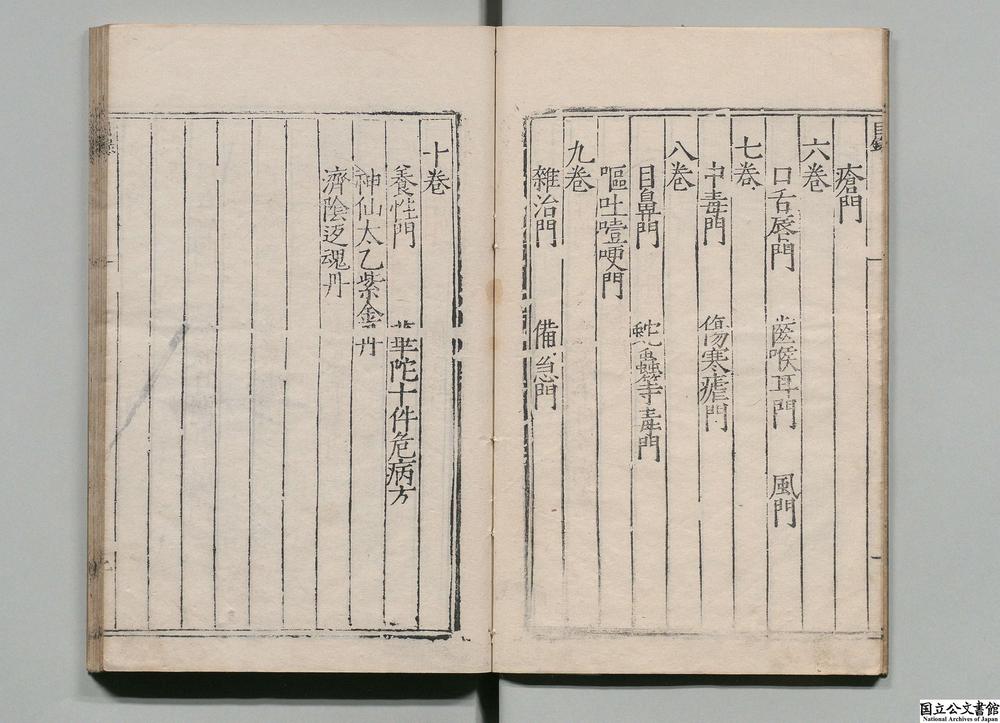 目録
瘡門
六巻
口舌唇門 齒喉耳門 風門
七巻
中毒門 傷寒瘧門
八巻
目鼻門 蛇蟲等毒門
嘔吐噎哽門
九巻
雜治門 備急門
十巻
養性門 華陀十件危病方
神仙太乙紫金丹
濟陰返魂丹
国立公文書館
National Archives of Japan